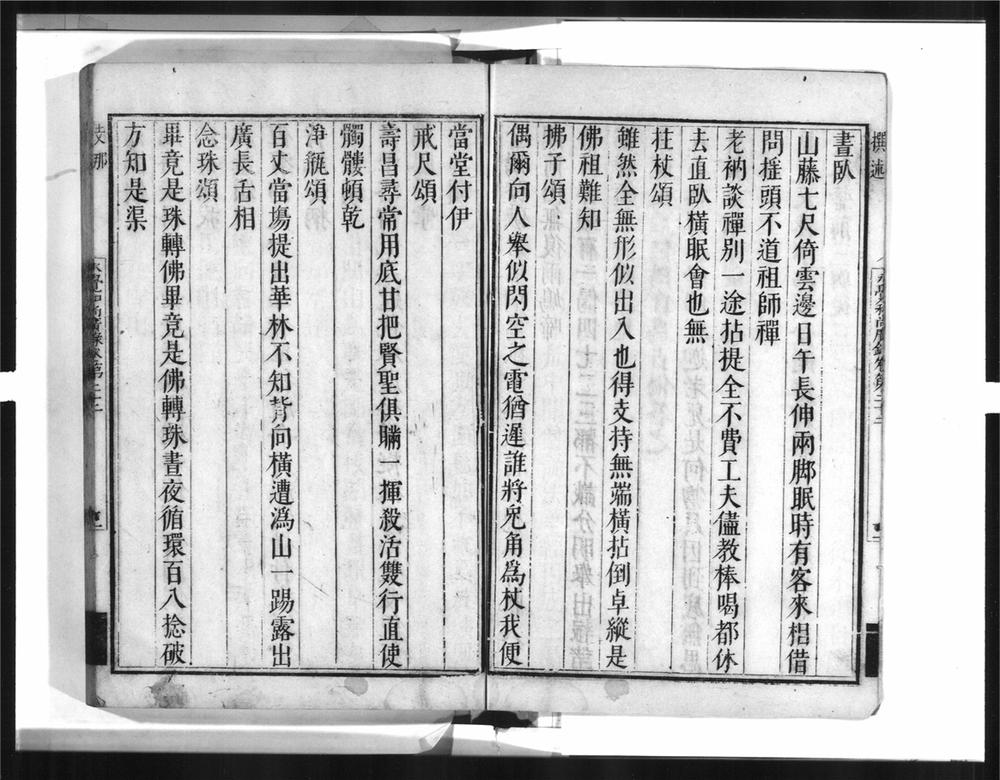 晝臥
山藤七尺倚雲邊日午長伸兩脚眠時有客來相借
問搖頭不道祖師禪
老衲談禪別一途拈提全不費工夫儘教棒喝都休
去直臥橫眠會也無
拄杖頌
雖然全無形似出入也得支持無端橫拈倒卓縱是
佛祖難知
拂子頌
偶爾向人舉似閃空之電猶遲誰將兔角為杖我便
當堂付伊
戒尺頌
壽昌尋常用底甘把賢聖俱瞞一揮殺活雙行直使
髑髏頓乾
淨瓶頌
百丈當場提出華林不知背向橫遭溈山一踢露出
廣長舌相
念珠頌
畢竟是珠轉佛畢竟是佛轉珠晝夜循環百八捻破
方知是渠